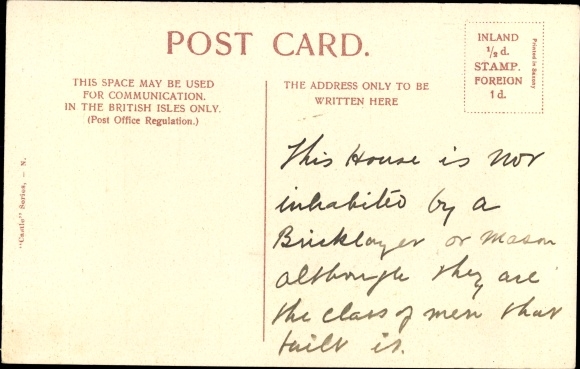 POST CARD.
THIS SPACE MAY BE USED
FOR COMMUNICATION.
IN THE BRITISH ISLES ONLY.
(Post Office Regulation.)
"Castle" Series, — N.
THE ADDRESS ONLY TO BE
WRITTEN HERE
INLAND
½ d.
STAMP.
FOREIGN
1 d.
Printed in Saxony
This House is not
inhabited by a
Bricklayer or Mason
although they are
the class of men that
built it.